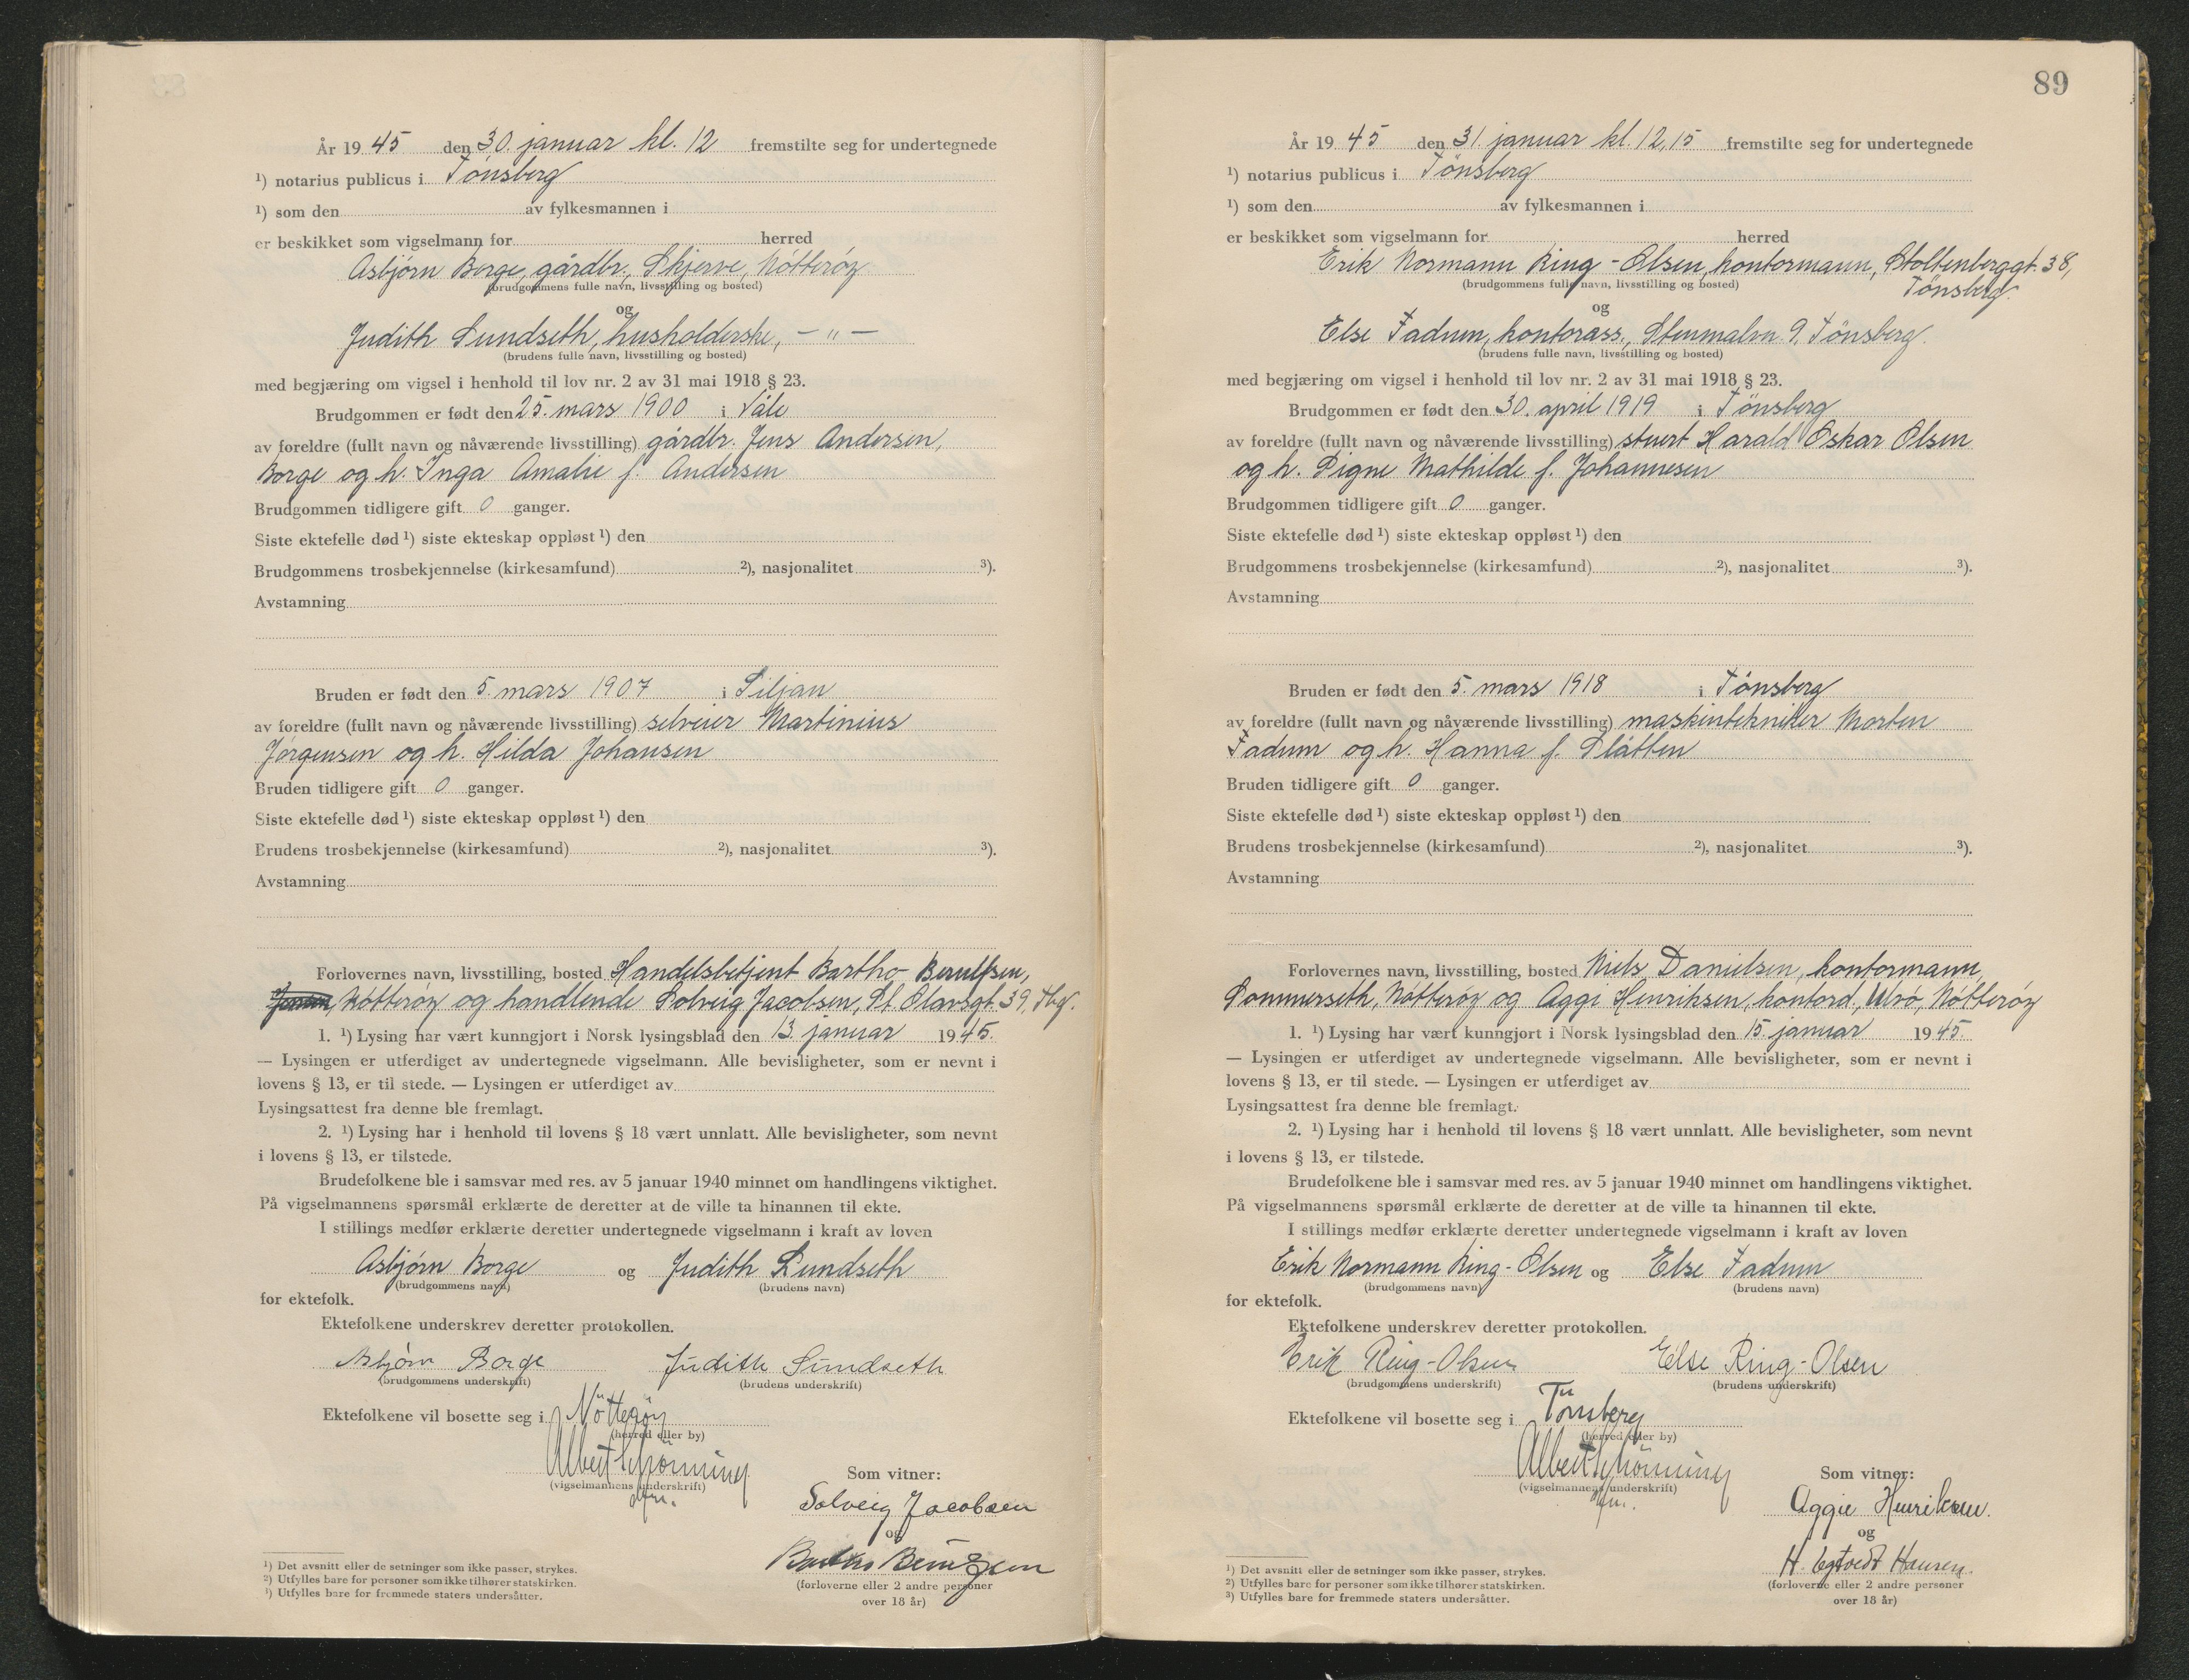 År 19 45 den 30. januar kl. 12 fremstilte seg for undertegnede
¹) notarius publicus i Tönsberg
¹) som den av fylkesmannen i
er beskikket som vigselmann for herred
Asbjørn Borge, gårdbr., Skjerve, Nøtterøy
(brudgommens fulle navn, livsstilling og bosted)
og
Judith Sundseth, husholderske, — " —
(brudens fulle navn, livsstilling og bosted)
med begjæring om vigsel i henhold til lov nr. 2 av 31 mai 1918 § 23.
Brudgommen er født den 25. mars 1900 i Våle
av foreldre (fullt navn og nåværende livsstilling) gårdbr. Jens Andersen,
Borge og h. Inga Amalie f. Andersen
Brudgommen tidligere gift 0 ganger.
Siste ektefelle død ¹) siste ekteskap oppløst ¹) den
Brudgommens trosbekjennelse (kirkesamfund) ²), nasjonalitet ³).
Avstamning
Bruden er født den 5. mars 1907 i Siljan
av foreldre (fullt navn og nåværende livsstilling) selveier Martinius
Jørgensen og h. Hilda Johansen
Bruden tidligere gift 0 ganger.
Siste ektefelle død ¹) siste ekteskap oppløst ¹) den
Brudens trosbekjennelse (kirkesamfund) ²), nasjonalitet ³).
Avstamning
Forlovernes navn, livsstilling, bosted Handelsbetjent Bartho Berulfsen,
Nøtterøy og handlende Solveig Jacobsen, St. Olavsgt. 39, Tbg.
1. ¹) Lysing har vært kunngjort i Norsk lysingsblad den 13. januar 1945.
— Lysingen er utferdiget av undertegnede vigselmann. Alle bevisligheter, som er nevnt i
lovens § 13, er til stede. — Lysingen er utferdiget av
Lysingsattest fra denne ble fremlagt.
2. ¹) Lysing har i henhold til lovens § 18 vært unnlatt. Alle bevisligheter, som nevnt
i lovens § 13, er tilstede.
Brudefolkene ble i samsvar med res. av 5 januar 1940 minnet om handlingens viktighet.
På vigselmannens spørsmål erklærte de deretter at de ville ta hinannen til ekte.
I stillings medfør erklærte deretter undertegnede vigselmann i kraft av loven
Asbjørn Borge og Judith Sundseth
(brudgommens navn) (brudens navn)
for ektefolk.
Ektefolkene underskrev deretter protokollen.
Asbjørn Borge Judith Sundseth
(brudgommens underskrift) (brudens underskrift)
Ektefolkene vil bosette seg i Nötteröy
(herred eller by)
Albert Schönning
(vigselmannens underskrift)
Som vitner:
Solveig Jacobsen
og
Bartho Berulfsen
(forloverne eller 2 andre personer
over 18 år)
¹) Det avsnitt eller de setninger som ikke passer, strykes.
²) Utfylles bare for personer som ikke tilhører statskirken.
³) Utfylles bare for fremmede staters undersåtter.
89
År 19 45 den 31. januar kl. 12,15 fremstilte seg for undertegnede
¹) notarius publicus i Tönsberg
¹) som den av fylkesmannen i
er beskikket som vigselmann for herred
Erik Normann Ring-Olsen, kontormann, Stoltenberggt. 38,
Tönsberg.
(brudgommens fulle navn, livsstilling og bosted)
og
Else Fadum, kontorass., Stenmalvn. 9, Tönsberg.
(brudens fulle navn, livsstilling og bosted)
med begjæring om vigsel i henhold til lov nr. 2 av 31 mai 1918 § 23.
Brudgommen er født den 30. april 1919 i Tönsberg
av foreldre (fullt navn og nåværende livsstilling) stuert Harald Oskar Olsen
og h. Signe Mathilde f. Johannesen
Brudgommen tidligere gift 0 ganger.
Siste ektefelle død ¹) siste ekteskap oppløst ¹) den
Brudgommens trosbekjennelse (kirkesamfund) ²), nasjonalitet ³).
Avstamning
Bruden er født den 5. mars 1918 i Tönsberg
av foreldre (fullt navn og nåværende livsstilling) maskintekniker Morten
Fadum og h. Hanna f. Slåtten
Bruden tidligere gift 0 ganger.
Siste ektefelle død ¹) siste ekteskap oppløst ¹) den
Brudens trosbekjennelse (kirkesamfund) ²), nasjonalitet ³).
Avstamning
Forlovernes navn, livsstilling, bosted Niels Danielsen, kontormann,
Sommerseth, Nøtterøy og Aggi Henriksen, kontord., Ulrø, Nøtterøy
1. ¹) Lysing har vært kunngjort i Norsk lysingsblad den 15. januar 1945.
— Lysingen er utferdiget av undertegnede vigselmann. Alle bevisligheter, som er nevnt i
lovens § 13, er til stede. — Lysingen er utferdiget av
Lysingsattest fra denne ble fremlagt.
2. ¹) Lysing har i henhold til lovens § 18 vært unnlatt. Alle bevisligheter, som nevnt
i lovens § 13, er tilstede.
Brudefolkene ble i samsvar med res. av 5 januar 1940 minnet om handlingens viktighet.
På vigselmannens spørsmål erklærte de deretter at de ville ta hinannen til ekte.
I stillings medfør erklærte deretter undertegnede vigselmann i kraft av loven
Erik Normann Ring-Olsen og Else Fadum
(brudgommens navn) (brudens navn)
for ektefolk.
Ektefolkene underskrev deretter protokollen.
Erik Ring-Olsen Else Ring-Olsen
(brudgommens underskrift) (brudens underskrift)
Ektefolkene vil bosette seg i Tönsberg
(herred eller by)
Albert Schönning
(vigselmannens underskrift)
Som vitner:
Aggie Henriksen.
og
H. Hansen.
(forloverne eller 2 andre personer
over 18 år)
¹) Det avsnitt eller de setninger som ikke passer, strykes.
²) Utfylles bare for personer som ikke tilhører statskirken.
³) Utfylles bare for fremmede staters undersåtter.